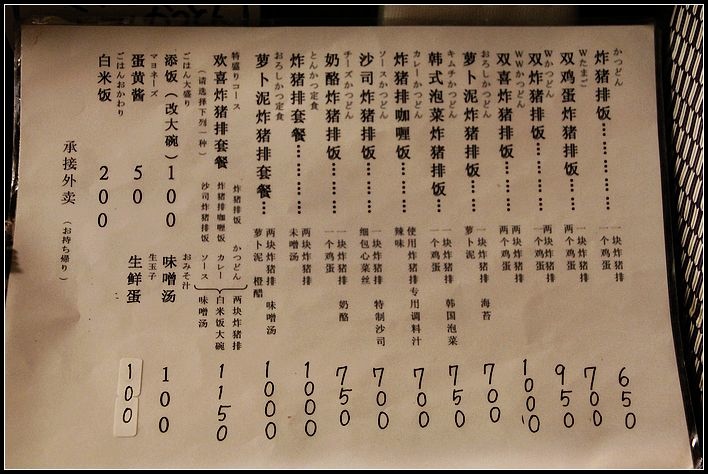 かつどん
炸猪排饭………
一块炸猪排
一个鸡蛋
650
Wたまご
双鸡蛋炸猪排饭……
一块炸猪排
两个鸡蛋
700
Wかつどん
双炸猪排饭………
两块炸猪排
一个鸡蛋
950
WWかつどん
双喜炸猪排饭……
两块炸猪排
两个鸡蛋
1000
おろしかつどん
萝卜泥炸猪排饭……
一块炸猪排 海苔
萝卜泥
700
キムチかつどん
韩式泡菜炸猪排饭…
一块炸猪排 韩国泡菜
一个鸡蛋
750
カレーかつどん
炸猪排咖喱饭……
使用炸猪排专用调料汁
辣味
700
ソースかつどん
沙司炸猪排饭……
一块炸猪排 特制沙司
细包心菜丝
700
チーズかつどん
奶酪炸猪排饭……
一块炸猪排 奶酪
一个鸡蛋
750
とんかつ定食
炸猪排套餐………
两块炸猪排
未噌汤
1000
おろしかつ定食
萝卜泥炸猪排套餐…
两块炸猪排 味噌汤
萝卜泥 橙醋
1000
特盛りコース
欢喜炸猪排套餐
(请选择下列一种)
炸猪排饭 かつどん
炸猪排咖喱饭 カレー
沙司炸猪排饭 ソース
两块炸猪排
白米饭大碗
味噌汤
1150
ごはん大盛り
添饭(改大碗)100
おみそ汁
味噌汤 100
マヨネーズ
蛋黄酱 50
生玉子
生鲜蛋 100
ごはんおかわり
白米饭 200
承接外卖 (お持ち帰り)